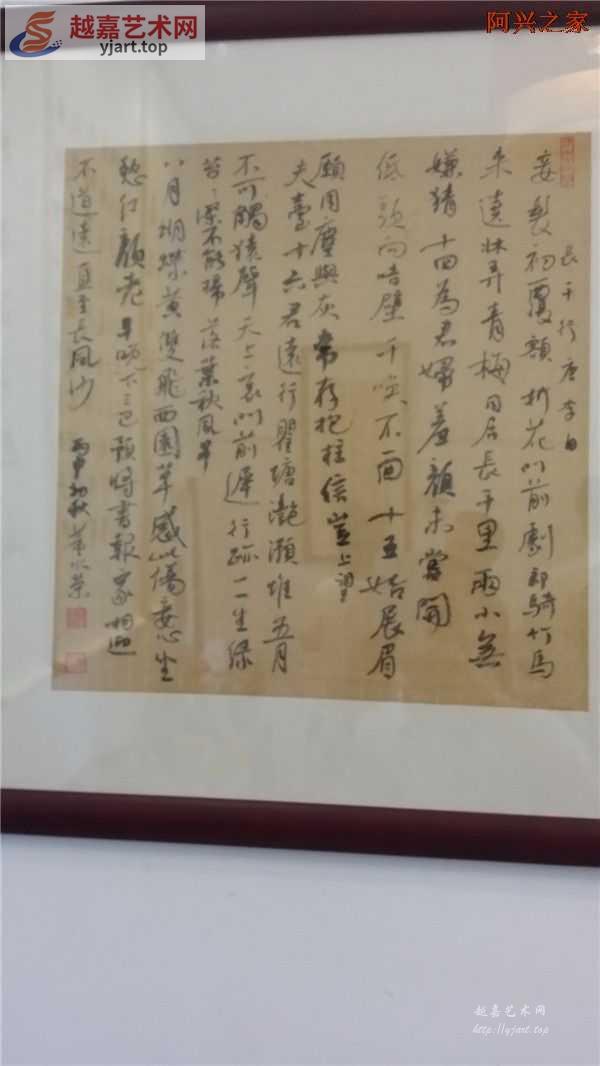 越嘉艺术网
yjart.top
阿兴之家
長干行 唐 李白
妾髮初覆額折花門前劇郎騎竹馬
来遶牀弄青梅同居長干里兩小無
嫌猜十四為君婦羞顔未嘗開
低頭向暗壁千喚不一回十五始展眉
願同塵與灰常存抱柱信豈上望
夫臺十六君遠行瞿塘灔澦堆五月
不可觸猿聲天上哀門前遲行跡一一生綠
苔苔深不能掃落葉秋風早
八月蝴蝶黄雙飛西園草感此傷妾心坐
愁红顔老早晚下三巴預將書報家相迎
不道遠直至長風沙 丙申初秋
越嘉艺术网
http://yjart.top